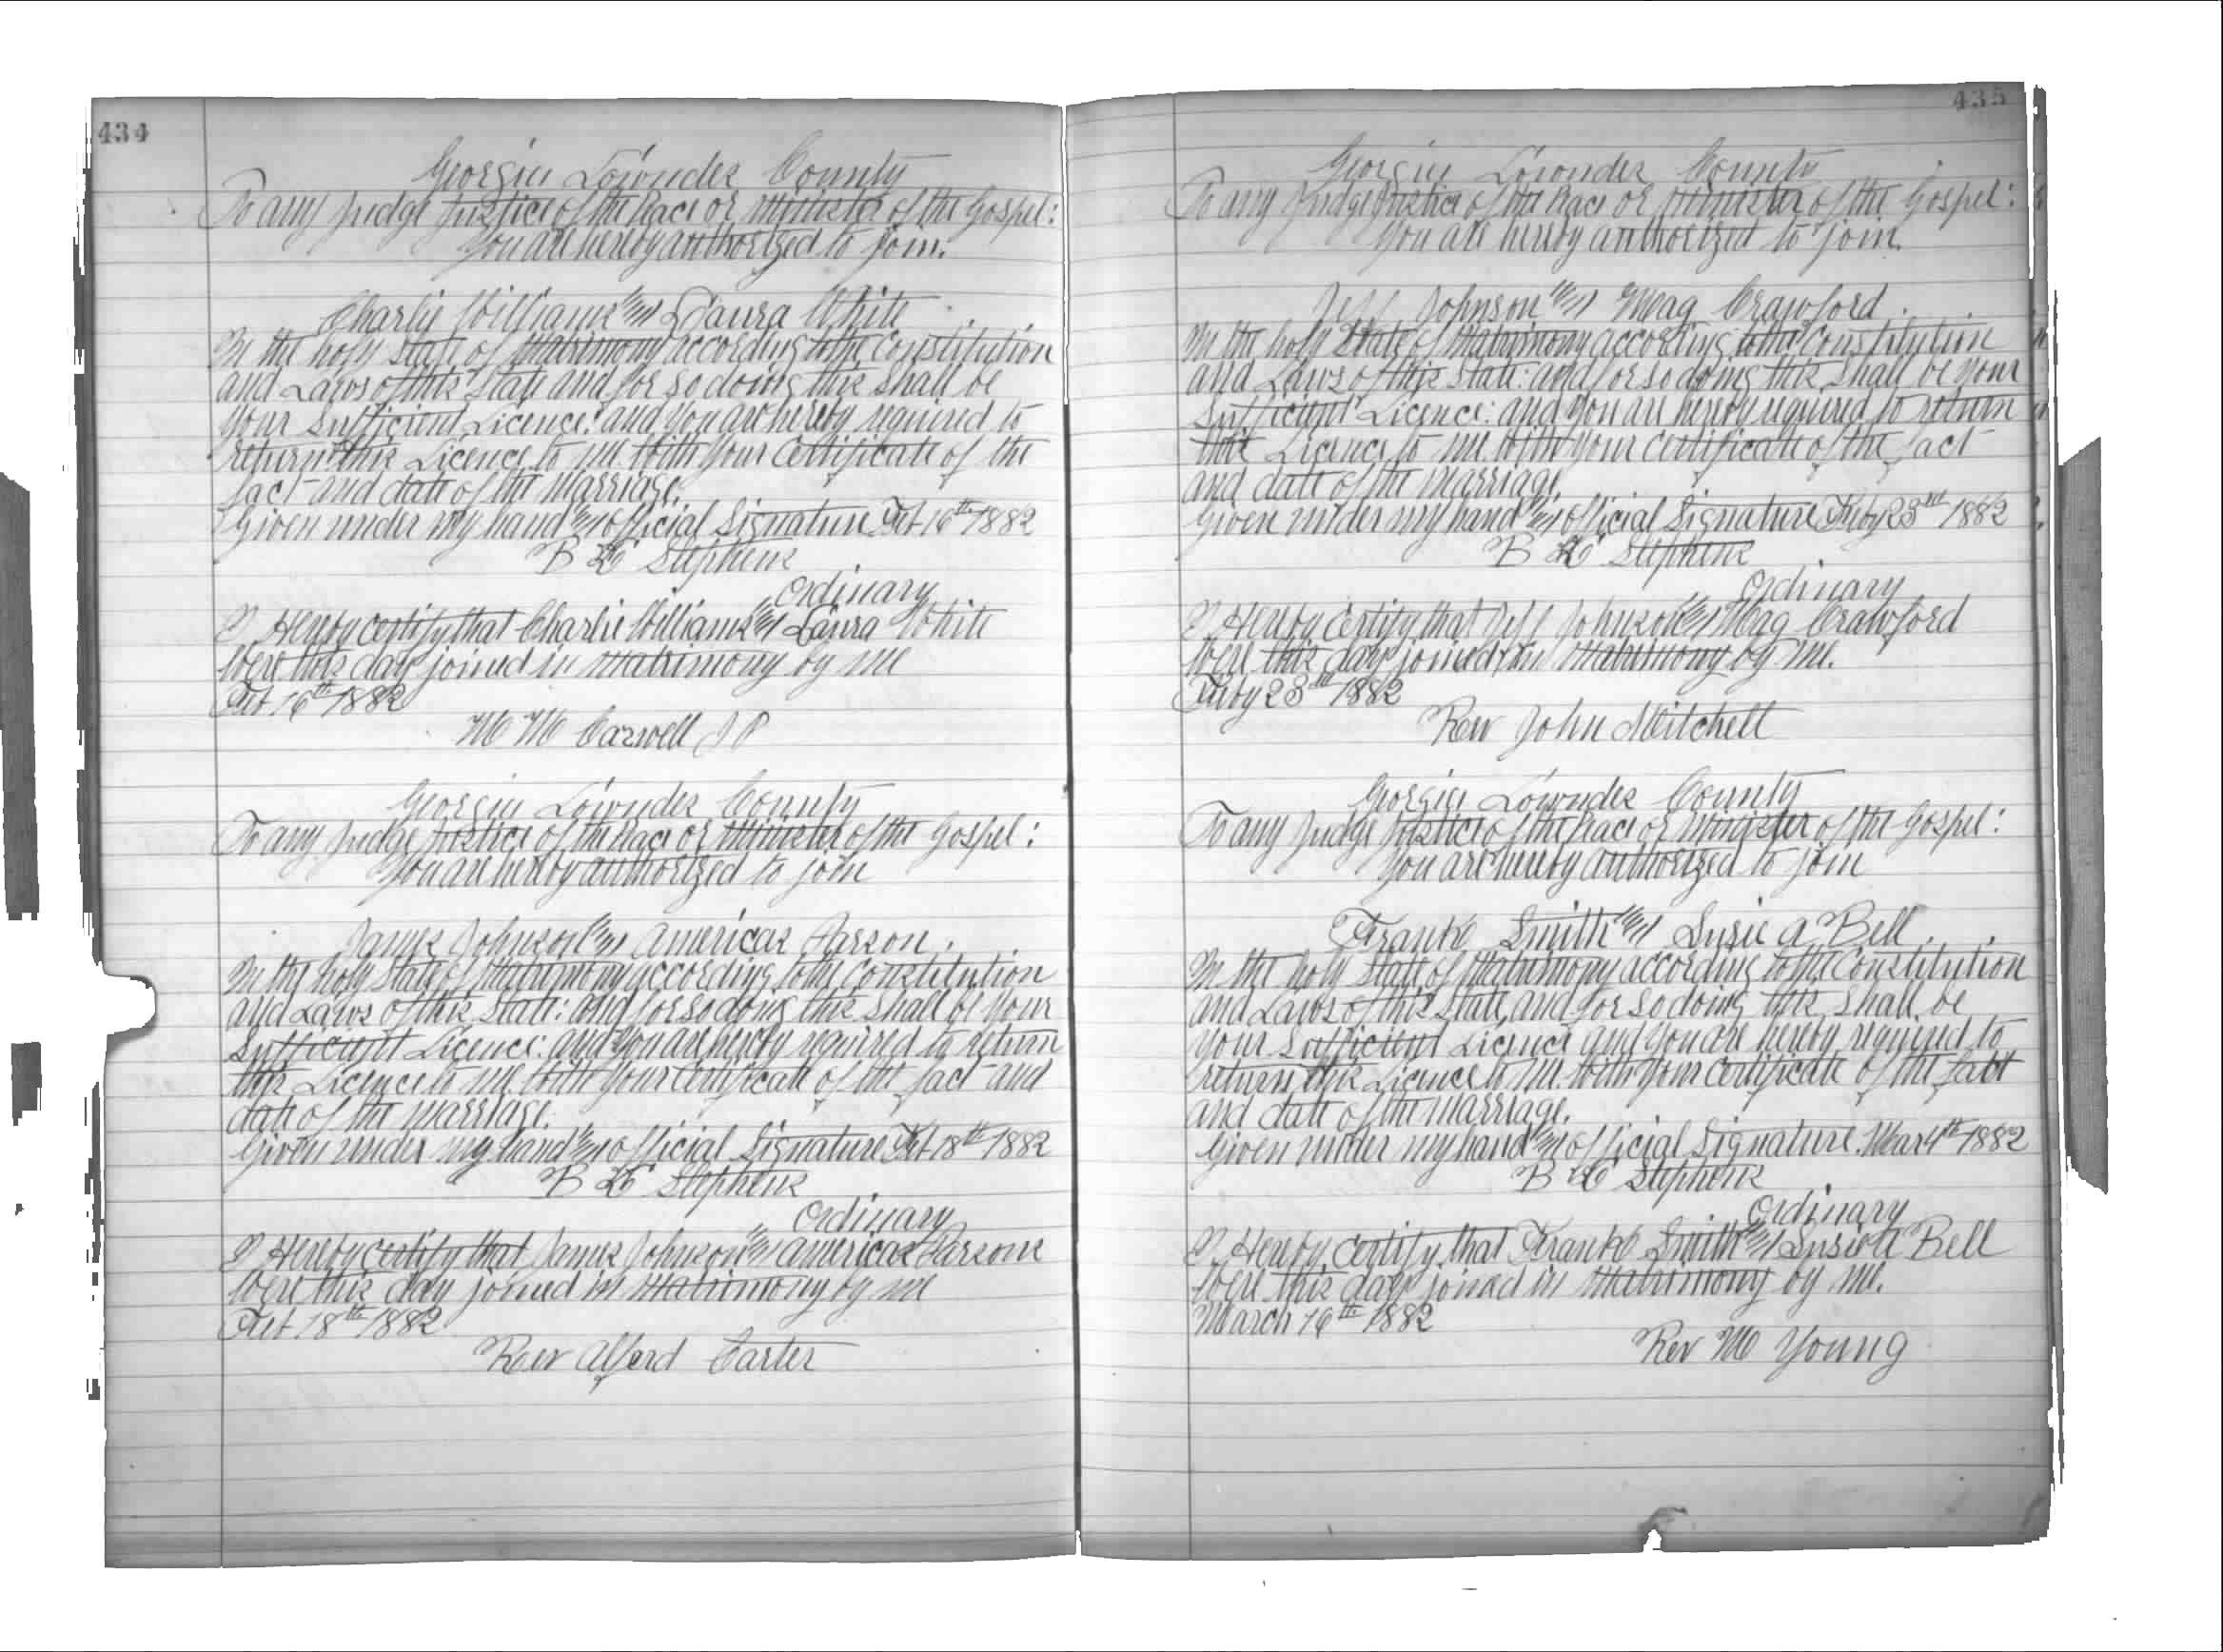 434
Georgia Lowndes County
To any Judge Justice of the Peace or Minister of the Gospel:
You are hereby authorized to join.
Charlie Williams and Laura White
In the holy State of Matrimony according to the Constitution
and Laws of this State and for so doing this shall be
your Sufficient Licence: and you are hereby required to
return this Licence to me with your Certificate of the
fact and date of the Marriage.
Given under my hand and official Signature Feb 16th 1882
B Stephens
Ordinary
I Hereby certify that Charlie Williams and Laura White
Were this day joined in Matrimony by me
Feb 16th 1882
M M Carwell J P
Georgia Lowndes County
To any Judge Justice of the Peace or Minister of the Gospel:
You are hereby authorized to join
James Johnson and Americas Parson.
In the holy State of Matrimony according to the Constitution
and Laws of this State: and for so doing this shall be your
Sufficient Licence: and you are hereby required to return
this Licence to me with your Certificate of the fact and
date of the Marriage.
Given under my hand and official Signature Feb 18th 1882
B Stephens
Ordinary
I Hereby certify that James Johnson and Americas Parsons
Were this day joined in Matrimony by me
Feb 18th 1882
Rev Alferd Carter
435
Georgia Lowndes County
To any Judge Justice of the Peace or Minister of the Gospel:
You are hereby authorized to join.
Jeff Johnson and Mag Crawford.
In the holy State of Matrimony according to the Constitution
and Laws of this State: and for so doing this shall be your
Sufficient Licence: and you are hereby required to return
this Licence to me with your certificate of the fact
and date of the Marriage.
Given under my hand and official Signature Feby 23rd 1882
B Stephens
Ordinary
I Hereby certify that Jeff Johnson and Mag Crawford
Were this day joined in Matrimony by me.
Feby 23rd 1882
Rev John Mitchell
Georgia Lowndes County
To any Judge Justice of the Peace or Minister of the Gospel:
You are hereby authorized to join
Frank Smith and Susie A Bell.
In the holy State of Matrimony according to the Constitution
and Laws of this State, and for so doing this shall be
your Sufficient Licence and you are hereby required to
return this Licence to me with your Certificate of the fact
and date of the Marriage.
Given under my hand and official Signature. Mar 4th 1882
B Stephens
Ordinary
I Hereby certify that Frank Smith and Susie A Bell
Were this day joined in Matrimony by me.
March 16th 1882
Rev M Young